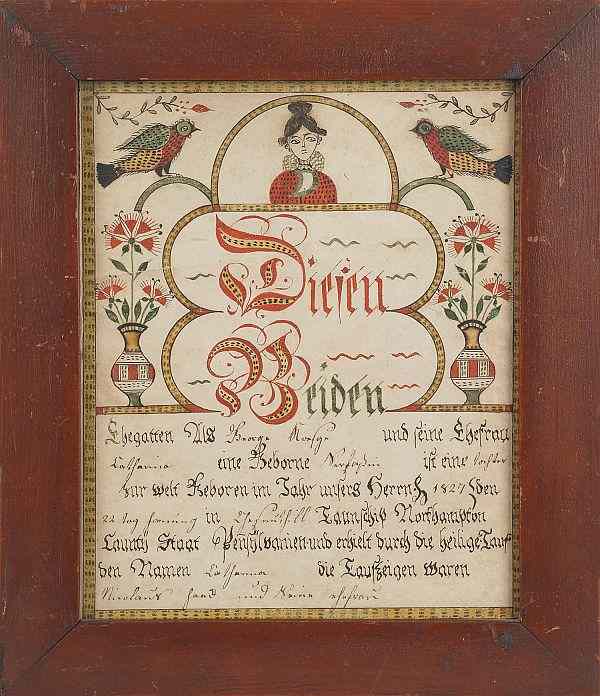 Diesen
Beiden
Ehegatten Als George und seine Ehefrau
Catharina eine Geborne ist eine tochter
zur welt Geboren im Jahr unsers Herrn 1827 den
22 tag in Chesnuthill Taunschip Northampton
Caunty Staat Pennsylvanien und erhielt durch die heilige Tauf
den Namen Catharina die Taufzeigen waren
Nicolaus Haas und Seine ehefrau